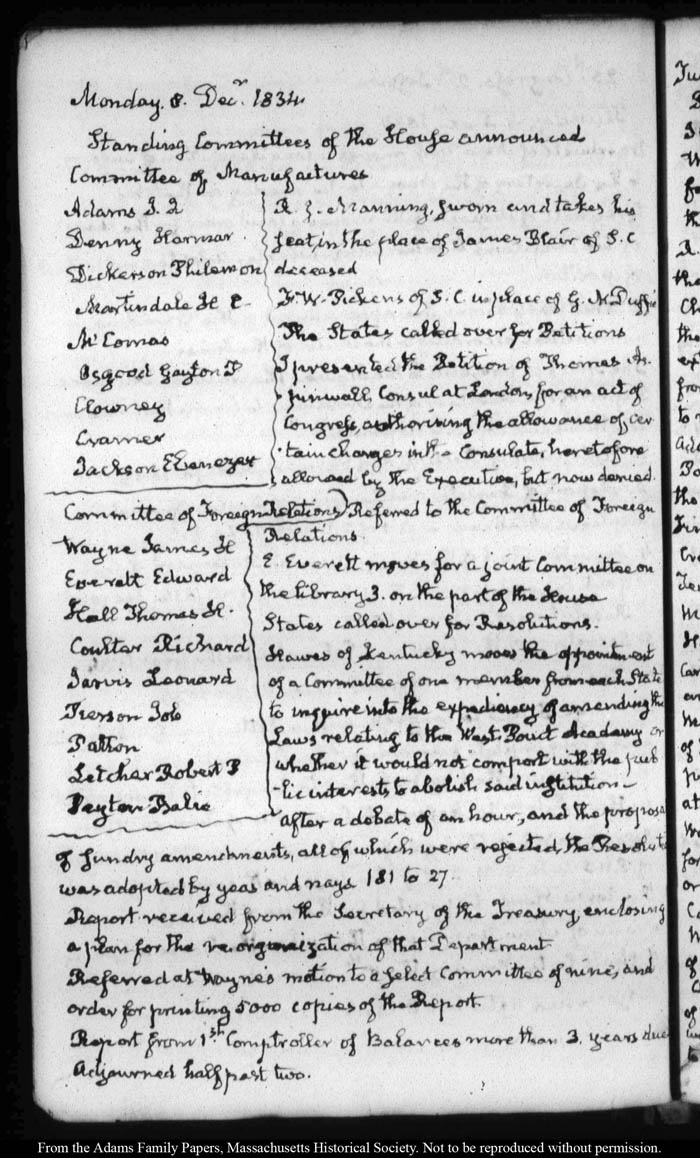 Monday. 8. Decr. 1834.
Standing Committees of the House announced
Committee of Manufactures
Adams J. Q
Denny Harmar.
Dickerson Philemon
Martindale H C.
McComas
Osgood Gayton P
Clowney
Cramer
Jackson Ebenezer
R. J. Manning, sworn and takes his
seat, in the place of James Blair of S. C
deceased
F. W. Pickens of S. C in place of G. McDuffie
The States called over for Petitions
I presented the Petition of Thomas As-
pinwall, Consul at London, for an act of
Congress, authorising the allowance of cer
-tain charges in the Consulate, heretofore
allowed by the Executive, but now denied.
Committee of Foreign Relations
Wayne James M
Everett Edward
Hall Thomas H.
Coulter Richard
Jarvis Leonard
Pierson Job
Patton
Letcher Robert P
Peyton Balie
Referred to the Committee of Foreign
Relations.
E. Everett moves for a joint Committee on
the library 3. on the part of the House
States called over for Resolutions.
Hawes of Kentucky moves the appointment
of a Committee of one member from each State
to inquire into the expediency of amending the
Laws relating to the West-Point Academy or
whether it would not comport with the pub
-lic interests to abolish said institution—
after a debate of an hour, and the proposa
of sundry amendments, all of which were rejected, the Resolut
was adopted by yeas and nays 181 to 27
Report received from the Secretary of the Treasury, enclosing
a plan for the re.organization of that Department
Referred at Wayne's motion to a select Committee of nine, and
order for printing 5000 copies of the Report.
Report from 1st Comptroller of Balances more than 3. years due
Adjourned half past two.
From the Adams Family Papers, Massachusetts Historical Society. Not to be reproduced without permission.